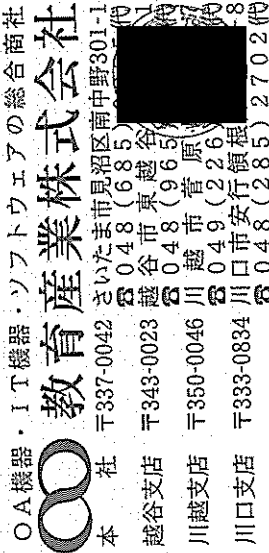 OA機器・IT機器・ソフトウェアの総合商社
教育産業株式会社
本 社 〒337-0042 さいたま市見沼区南中野301-1
☎048(685)
越谷支店 〒343-0023 越谷市東越谷
☎048(965)
川越支店 〒350-0046 川越市菅原
☎049(226
川口支店 〒333-0834 川口市安行領根
☎048(285)2702(代